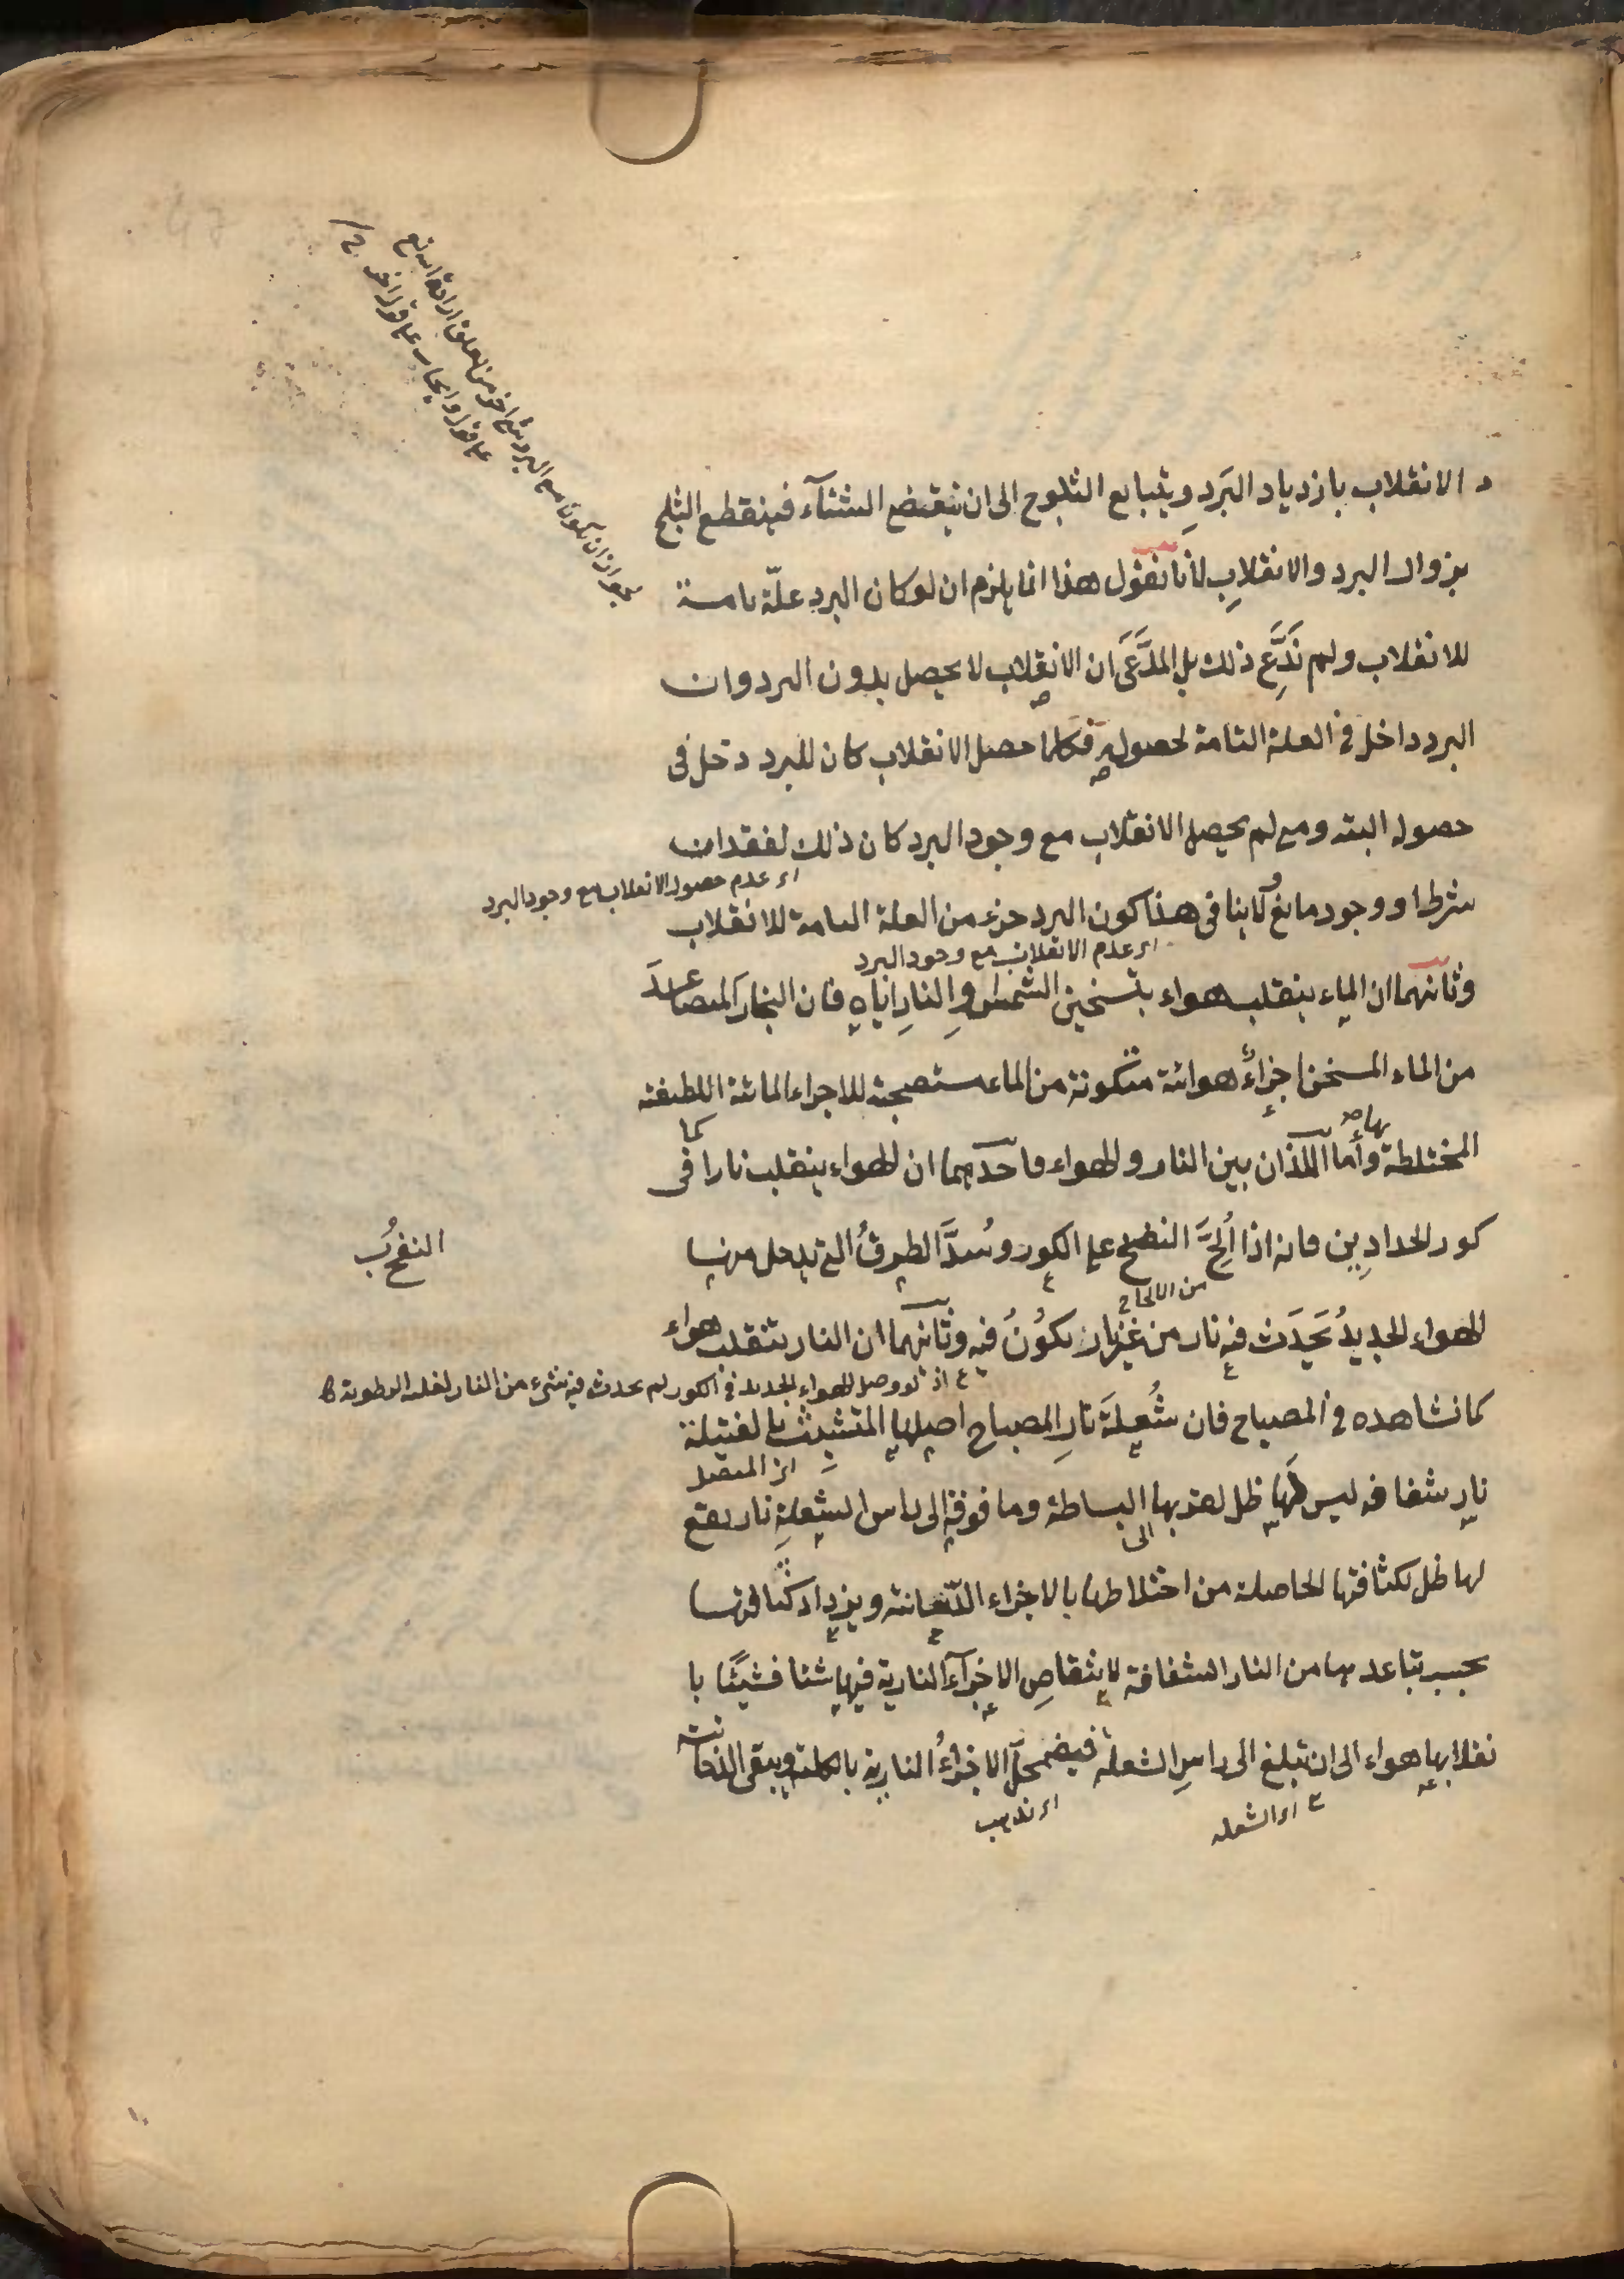 د الانقلاب بازدياد البَردِ ويتبابع الثلوج الى ان ينقضى الشتآء فينقطع الثلج
بزوال البرد والانقلابِ لانا نقول هذا انما يلزم ان لو كان البرد علّة تامة
للانقلاب ولم نَدَّعِ ذلك بل المدَّعَى ان الانقلاب لا يحصل بدون البرد وان
البرد داخل فى العلة التامة لحصوله فكلما حصل الانقلاب كان للبرد دخل فى
حصوله البته ومع لم يحصل الانقلاب مع وجود البرد كان ذلك لفقدان
اى عدم حصول الانقلاب مع وجود البرد
شرط او وجود مانع ولا ينافى هذا كون البرد جزء من العلة التامة للانقلاب
اى عدم الانقلاب مع وجود البرد
وثانيهما ان الماء ينقلب هواء بتسخين الشمسِ والنارِ اياه فان البخارَ المتصاعدَ
من الماء المسخن اجزاءٌ هوائية متكونة من الماء مستصحبة للاجزاء المائية اللطيفة
المختلطة بها وأما اللذان بين النار والهواء فاحدهما ان الهواء ينقلب نارا كما فى
كور الحدادِين فانه اذا اُلِحَّ النفخ على الكور وسُدَّ الطرقُ التى يدخل منها
النفخُ
من الالحاح
الهواء الجديدُ يَحدَث فيه نار من غير نار يكوُنُ فيه وثانيهما ان النار ينقلب هواء
اذ لو وصل الهواء الجديد فى الكور لم يحدث فيه شىء من النار لغلبة الرطوبة
كما نشاهده فى المصباح فان شُعلَةَ نارِ المصباح اصلها المتشبث بالفتيلة
اى المتصل
نار شفافة ليس لَها ظل لقربها الى البساطة وما فوقه الى راس الشعلةِ نار يقع
لها ظل لكثافتها الحاصلة من اختلاطها بالاجزاء الدّخانية ويزداد كثافتها
بحسب تباعدها من النار الشفافة لانتقاصِ الاجزآءِ النارية فيها شئا فشيئًا با
نقلابها هواء الى ان تبلغ الى راسِ الشعلة فيضمحلّ الاجزاءُ النارية بالكلية ويبقى الدخانية
اى الشعلة
اى تذهب